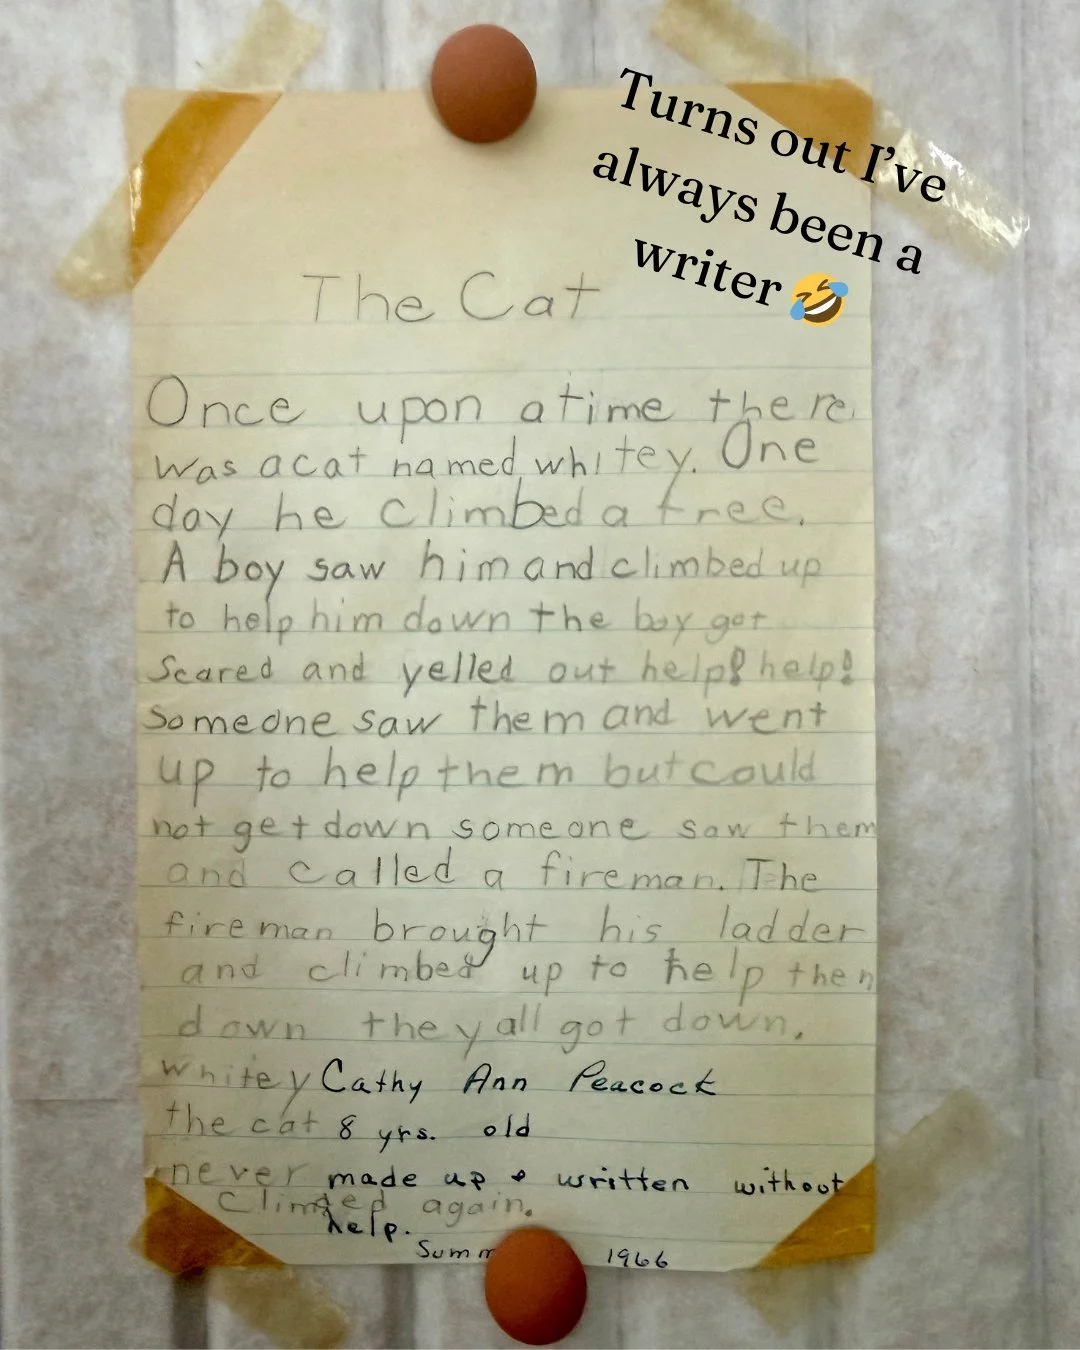 Turns out I've
always been a
writer 🤣
The Cat
Once upon atime there
was acat named whitey. One
day he climbed a tree.
A boy saw him and climbed up
to help him down the boy got
scared and yelled out help! help!
Someone saw them and went
up to help them but could
not get down someone saw them
and called a fireman. The
fireman brought his ladder
and climbed up to help then
down they all got down.
whitey Cathy Ann Peacock
the cat 8 yrs. old
never made up & written without
climbed again.
help.
1966